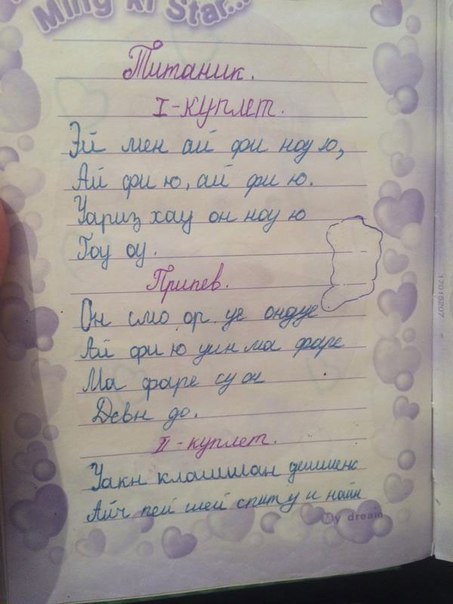 Ming xi Star...
Титаник.
I-куплет.
Эй мен ай фи ноу ю,
Ай фи ю, ай фи ю.
Уариз хау он ноу ю
Гоу оу.
Припев.
Он смо ор уе ондуе
Ай фи ю уин ма фаре
Ма фаре су он
Девн до.
II-куплет.
Уакн клашшан дишиенс
Айч пей шей спиту и найн
My dream
17016207